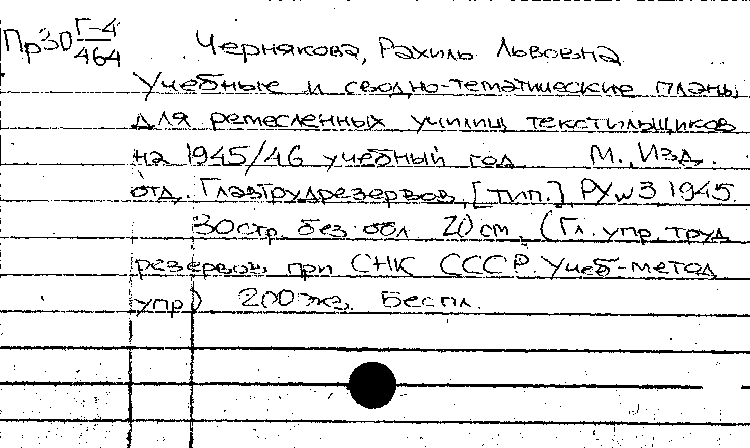 Пр30 Г-4/464
Чернякова, Рахиль Львовна
Учебные и сводно-тематические планы
для ремесленных училищ текстильщиков
на 1945/46 учебный год М., Изд.
отд. Главтрудрезервов, [тип.] РУ№3 1945.
30 стр. без обл. 20 см. (Гл. упр. труд
резервов при СНК СССР. Учеб-метод
упр) 200 экз. Беспл.